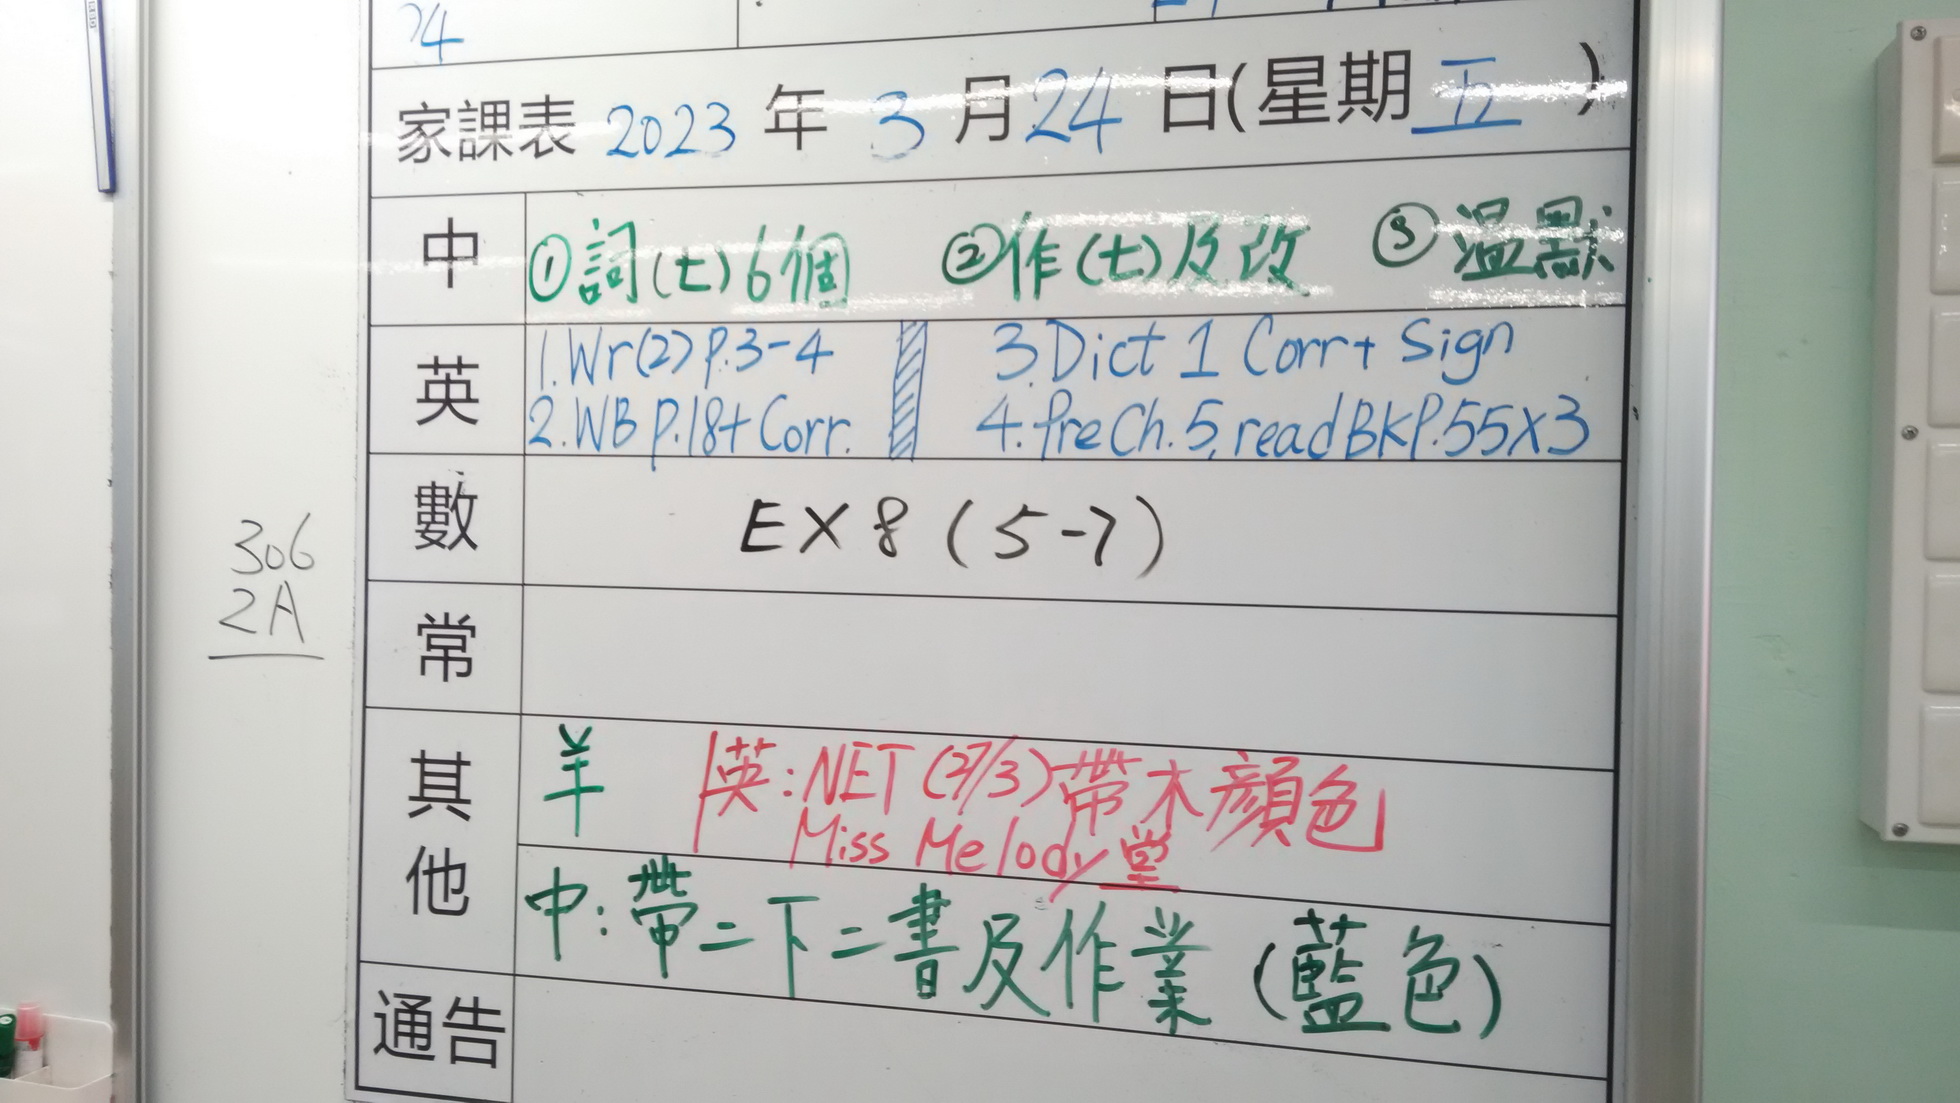 24
家課表 2023 年 3 月 24 日(星期 五 )
中 ①詞(七)6個 ②作(七)及改 ③溫默
英 1.Wr(2)P.3-4 3.Dict 1 Corr+ Sign
2.WB P.18+Corr. 4.Pre Ch.5, read BK P.55X3
數 EX 8 (5-7)
306
2A
常
其他 羊 英:NET(27/3)帶木顏色
Miss Melody堂
中:帶二下二書及作業(藍色)
通告